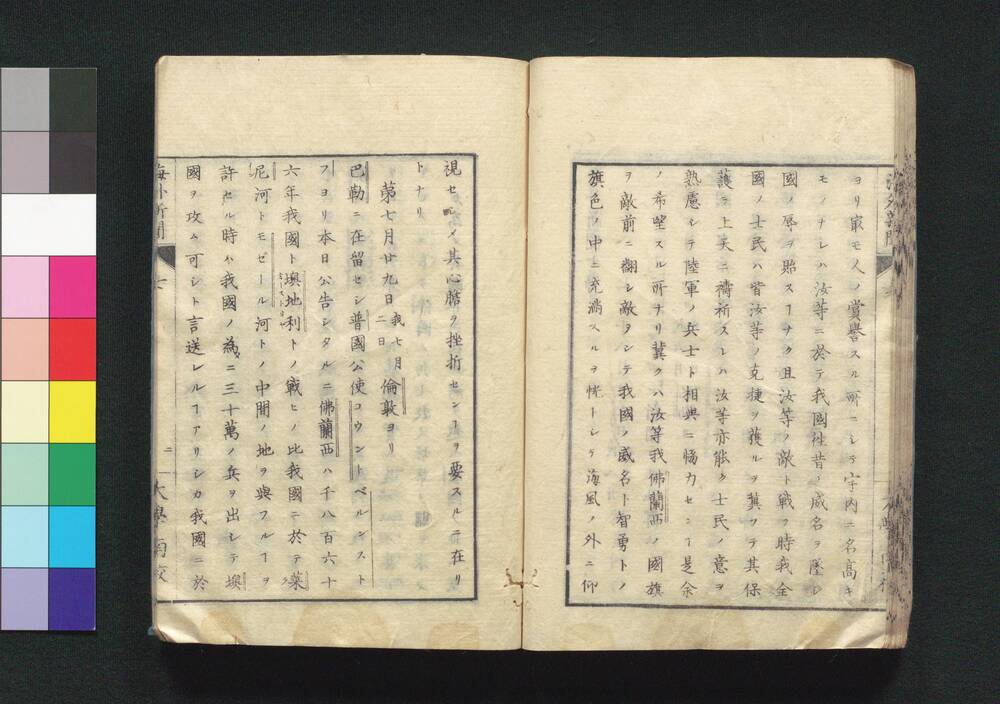 ヨリ取モ人ノ賞誉スル所ニシテ宇内ニ名高キ
モノナレハ汝等ニ於テ我國往昔ノ威名ヲ墜シ
國ノ辱ヲ貽スヿナク且汝等ノ敵ト戰フ時我全
國ノ士民ハ皆汝等ノ克捷ヲ獲ルヲ冀フテ其保
護ヲ上天ニ禱祈スレハ汝等亦能ク士民ノ意ヲ
熟慮シテ陸軍ノ兵士ト相與ニ恊力センヿ是余
ノ希望スル所ナリ冀クハ汝等我佛蘭西ノ國旗
ヲ敵前ニ翻シ敵ヲシテ我國ノ威名ト智勇トノ
旗色ノ中ニ充滿スルヲ恍トシテ海風ノ外ニ仰
視セシメ其心膽ヲ挫折センヿヲ要スルニ在リ
トナリ
第七月廿九日我七月二日倫敦ヨリ
巴勒ニ在留セシ普國公使コウントベルンスト
フヨリ本日公告シタルニ佛蘭西ハ千八百六十
六年我國ト墺地利トノ戰ヒノ比我國ニ於テ萊
尼河トモゼール河トノ中間ノ地ヲ與フルヿヲ
許セル時ハ我國ノ為ニ三十萬ノ兵ヲ出シテ墺
國ヲ攻ム可シト言送レルヿアリシカ我國ニ於
海外新聞 七 二 大學南校